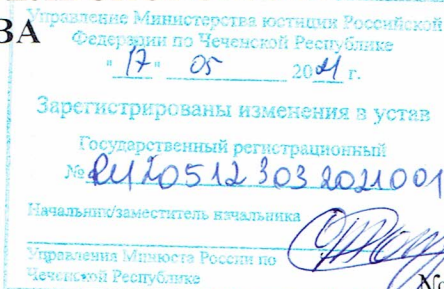 ВА
Управление Министерства юстиции Российской
Федерации по Чеченской Республике
"17" 05 2021 г.
Зарегистрированы изменения в устав
Государственный регистрационный
№ RU205123032021001
Начальник/заместитель начальника
Управления Минюста России по
Чеченской Республике
№